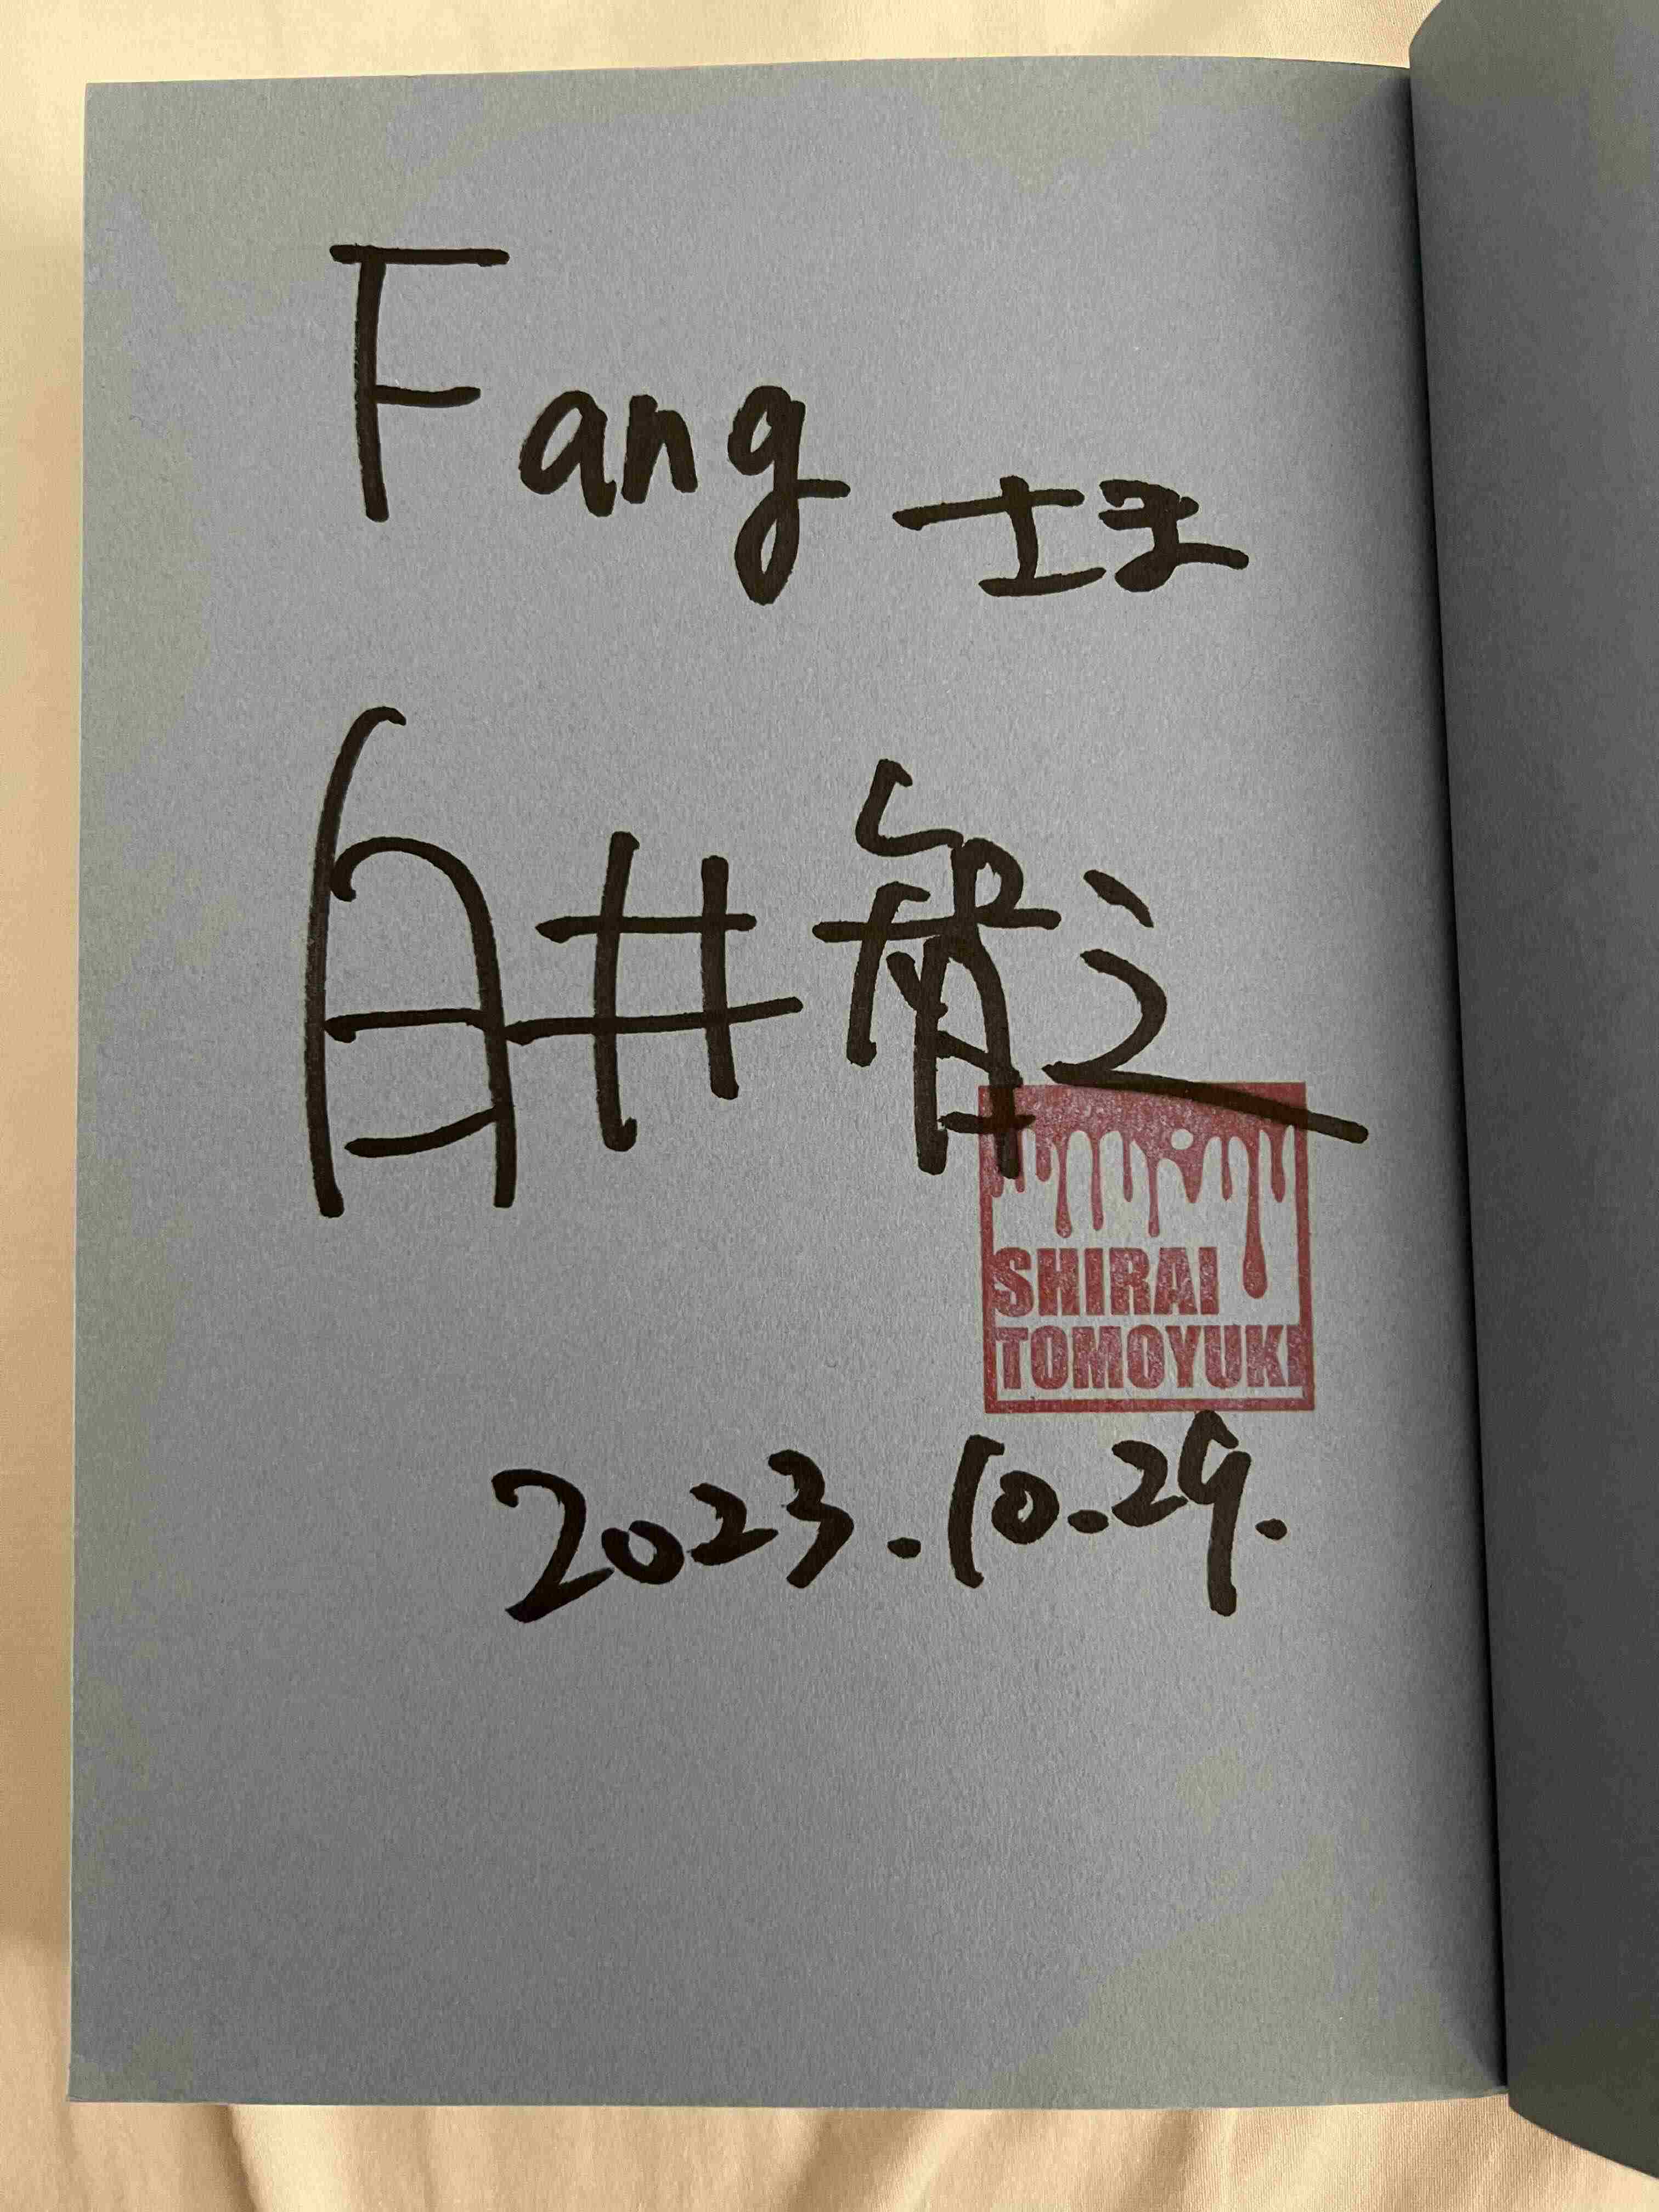 Fang 一 士玉
白井智之
SHIRAI
TOMOYUKI
2023.10.29.